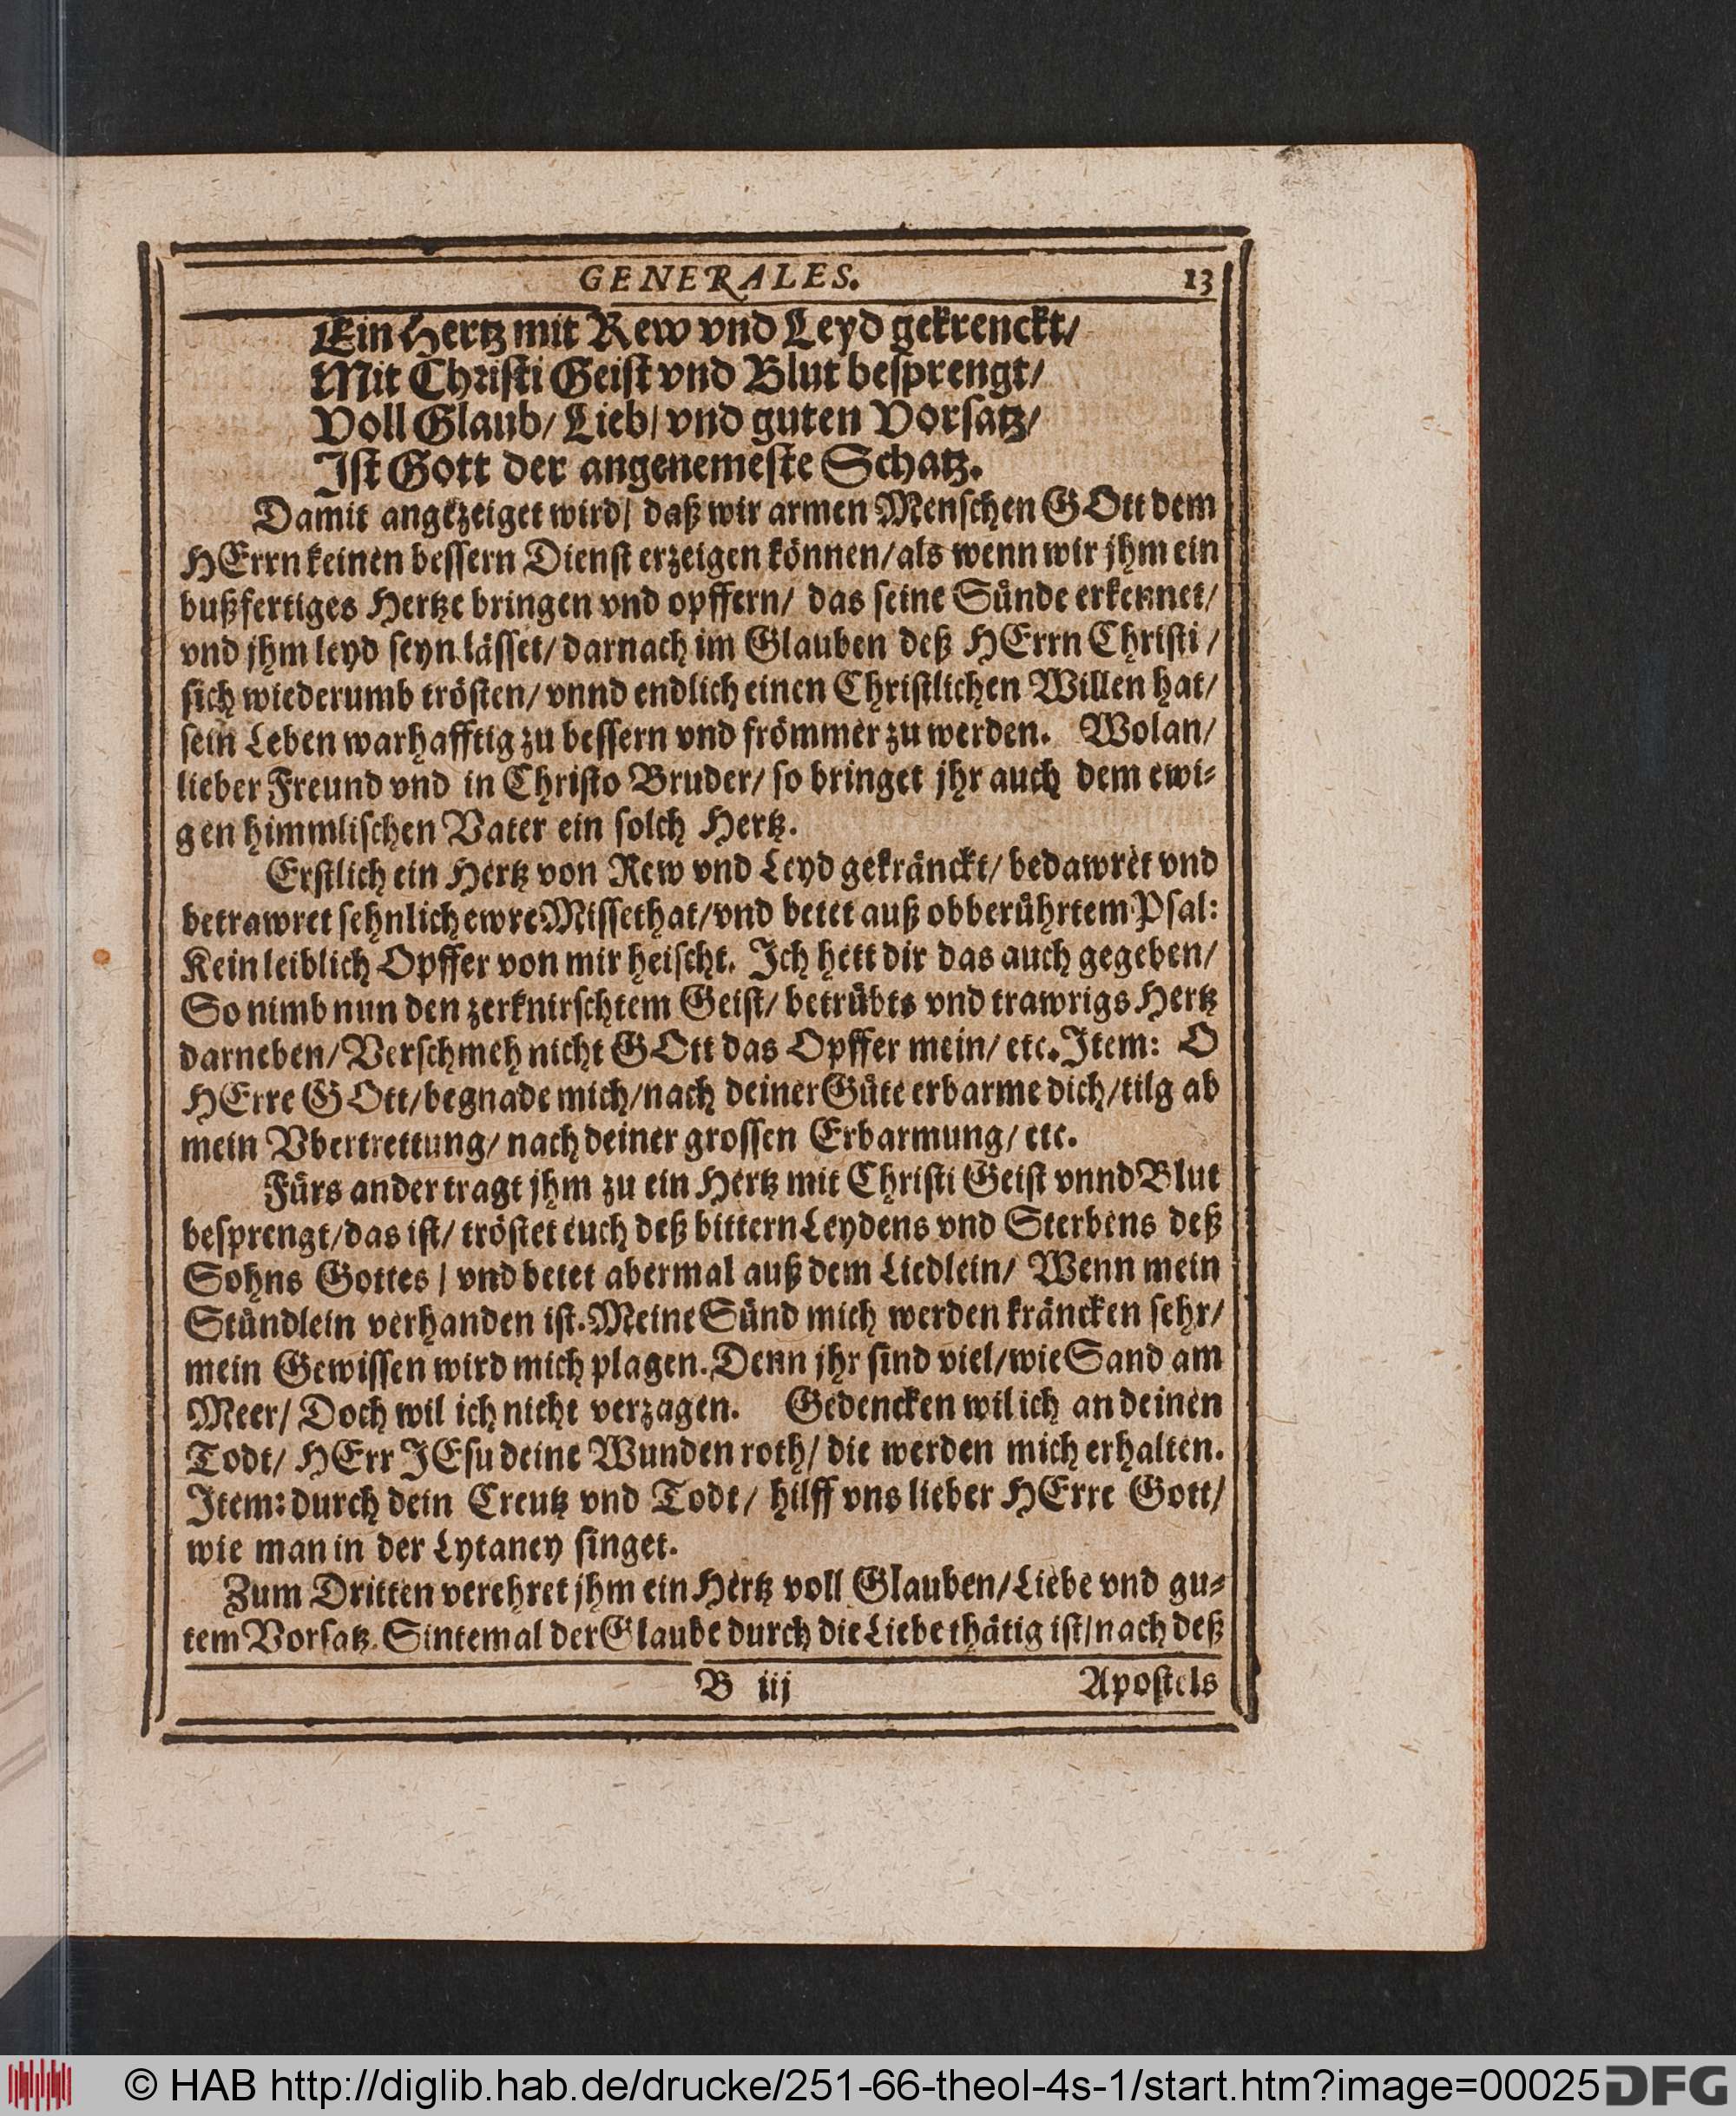 GENERALES. 13
Ein Hertz mit Rew vnd Leyd gekrenckt/
Mit Christi Geist vnd Blut besprengt/
Voll Glaub/ Lieb/ vnd guten Vorsatz/
Ist Gott der angenemeste Schatz.
Damit angezeiget wird/ daß wir armen Menschen GOtt dem
HErrn keinen bessern Dienst erzeigen können/als wenn wir jhm ein
bußfertiges Hertze bringen vnd opffern/ das seine Sünde erkennet/
vnd jhm leyd seyn lässet/ darnach im Glauben deß HErrn Christi/
sich wiederumb trösten/ vnnd endlich einen Christlichen Willen hat/
sein Leben warhafftig zu bessern vnd frömmer zu werden. Wolan/
lieber Freund vnd in Christo Bruder/ so bringet jhr auch dem ewi-
gen himmlischen Vater ein solch Hertz.
Erstlich ein Hertz von Rew vnd Leyd gekränckt/ bedawret vnd
betrawret sehnlich ewre Missethat/vnd betet auß obberührtem Psal:
Kein leiblich Opffer von mir heischt. Ich hett dir das auch gegeben/
So nimb nun den zerknirschtem Geist/ betrübts vnd trawrigs Hertz
darneben/ Verschmeh nicht GOtt das Opffer mein/ etc. Item: O
HErre GOtt/begnade mich/nach deiner Güte erbarme dich/tilg ab
mein Vbertrettung/ nach deiner grossen Erbarmung/ etc.
Fürs ander tragt jhm zu ein Hertz mit Christi Geist vnnd Blut
besprengt/das ist/ tröstet euch deß bittern Leydens vnd Sterbens deß
Sohns Gottes/ vnd betet abermal auß dem Liedlein/ Wenn mein
Stündlein verhanden ist. Meine Sünd mich werden kräncken sehr/
mein Gewissen wird mich plagen. Denn jhr sind viel/wie Sand am
Meer/ Doch wil ich nicht verzagen. Gedencken wil ich an deinen
Todt/ HErr JEsu deine Wunden roth/ die werden mich erhalten.
Item: durch dein Creutz vnd Todt/ hilff vns lieber HErre Gott/
wie man in der Lytaney singet.
Zum Dritten verehret jhm ein Hertz voll Glauben/Liebe vnd gu-
tem Vorsatz. Sintemal der Glaube durch die Liebe thätig ist/nach deß
B iij Apostels
© HAB http://diglib.hab.de/drucke/251-66-theol-4s-1/start.htm?image=00025 DFG